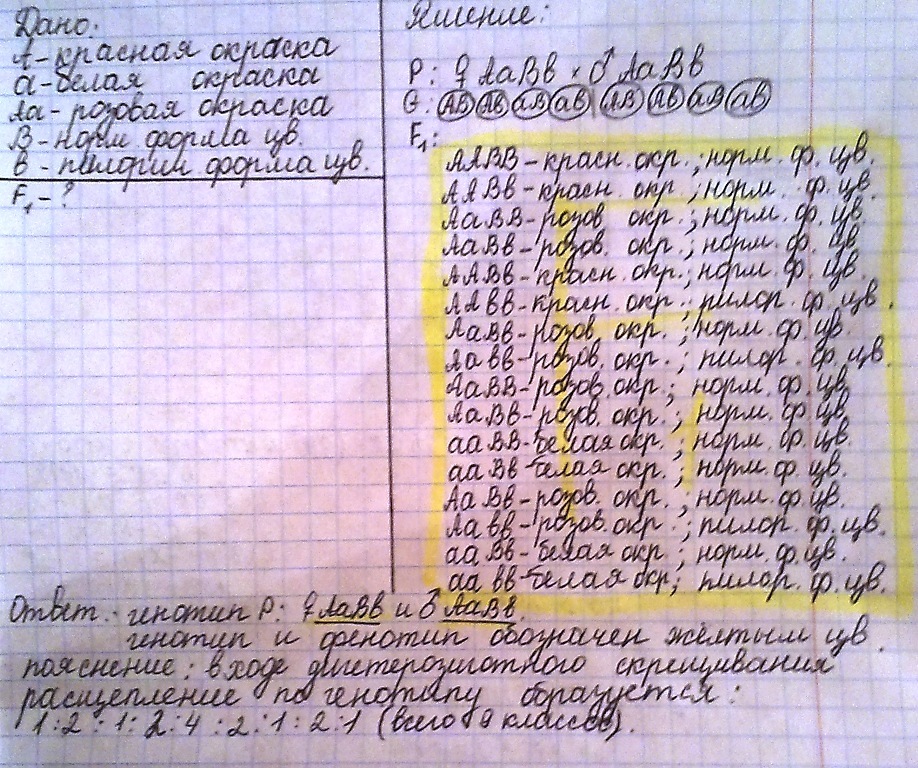 Дано:
А-красная окраска
а-белая окраска
Аа-розовая окраска
В-норм форма цв.
в-пилорич форма цв.
F₁-?
Решение:
Р: ♀ АаВв × ♂ АаВв
G: АВ Ав аВ ав АВ Ав аВ ав
F₁:
ААВВ-красн. окр.; норм. ф. цв.
ААВв-красн. окр.; норм. ф. цв.
АаВВ-розов. окр.; норм. ф. цв.
АаВв-розов. окр.; норм. ф. цв
ААВв-красн. окр.; норм. ф. цв.
ААвв-красн. окр.; пилор. ф. цв.
АаВв-розов. окр.; норм. ф. цв.
Аавв-розов. окр.; пилор. ф. цв.
АаВВ-розов. окр.; норм. ф. цв.
АаВв-розов. окр.; норм. ф. цв.
ааВВ-белая окр.; норм. ф. цв.
ааВв-белая окр.; норм. ф. цв.
АаВв-розов. окр.; норм. ф. цв.
Аавв-розов. окр.; пилор. ф. цв.
ааВв-белая окр.; норм. ф. цв.
аавв-белая окр; пилор. ф. цв.
Ответ: генотип Р: ♀ АаВв и ♂ АаВв.
генотип и фенотип обозначен жёлтым цв.
пояснение: в ходе дигетерозиготного скрещивания
расщепление по генотипу образуется:
1:2:1:2:4:2:1:2:1 (всего 9 классов).